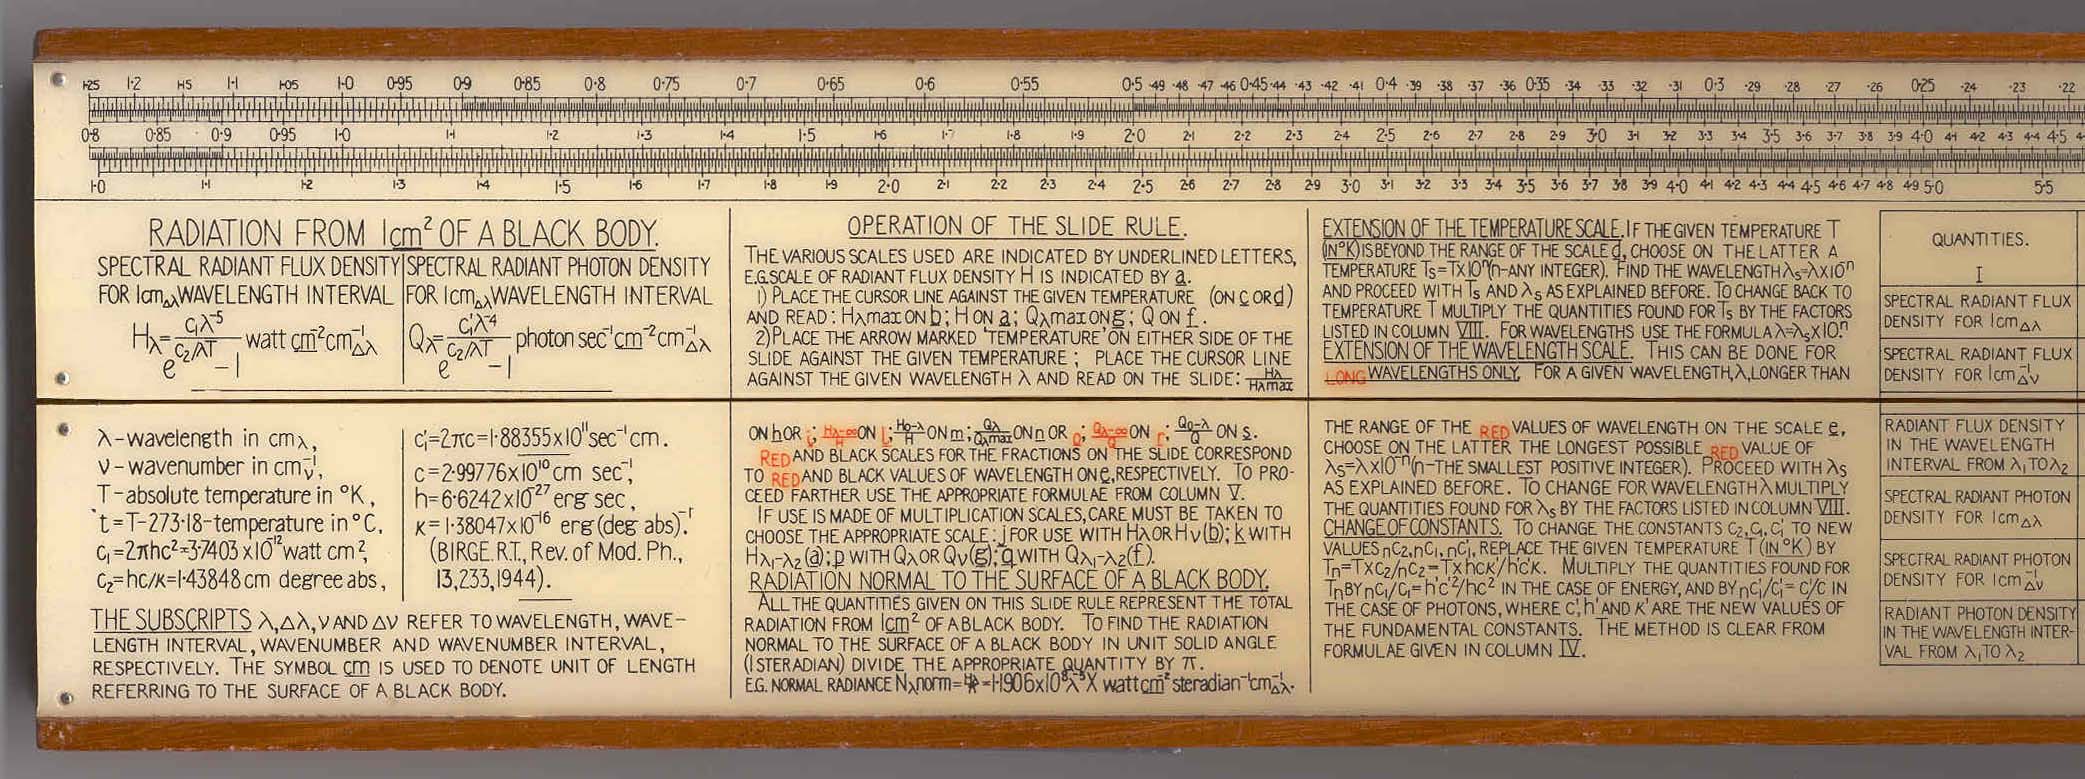 1·25 1·2 1·15 1·1 1·05 1·0 0·95 0·9 0·85 0·8 0·75 0·7 0·65 0·6 0·55 0·5 ·49 ·48 ·47 ·46 0·45 ·44 ·43 ·42 ·41 0·4 ·39 ·38 ·37 ·36 0·35 ·34 ·33 ·32 ·31 0·3 ·29 ·28 ·27 ·26 0·25 ·24 ·23 ·22
0·8 0·85 0·9 0·95 1·0 1·1 1·2 1·3 1·4 1·5 1·6 1·7 1·8 1·9 2·0 2·1 2·2 2·3 2·4 2·5 2·6 2·7 2·8 2·9 3·0 3·1 3·2 3·3 3·4 3·5 3·6 3·7 3·8 3·9 4·0 4·1 4·2 4·3 4·4 4·5
1·0 1·1 1·2 1·3 1·4 1·5 1·6 1·7 1·8 1·9 2·0 2·1 2·2 2·3 2·4 2·5 2·6 2·7 2·8 2·9 3·0 3·1 3·2 3·3 3·4 3·5 3·6 3·7 3·8 3·9 4·0 4·1 4·2 4·3 4·4 4·5 4·6 4·7 4·8 4·9 5·0 5·5
RADIATION FROM 1cm² OF A BLACK BODY.
SPECTRAL RADIANT FLUX DENSITY
FOR 1cm_Δλ WAVELENGTH INTERVAL
H_λ = c₁λ⁻⁵ / (e^(c₂/λT) − 1) watt cm⁻² cm⁻¹_Δλ
SPECTRAL RADIANT PHOTON DENSITY
FOR 1cm_Δλ WAVELENGTH INTERVAL
Q_λ = c₁'λ⁻⁴ / (e^(c₂/λT) − 1) photon sec⁻¹ cm⁻² cm⁻¹_Δλ
λ-wavelength in cm_λ,
ν-wavenumber in cm⁻¹_ν,
T-absolute temperature in °K,
t=T-273·18-temperature in °C.
c₁=2πhc²=3·7403×10⁻¹² watt cm²,
c₂=hc/κ=1·43848 cm degree abs,
c₁'=2πc=1·88355×10¹¹ sec⁻¹ cm.
c=2·99776×10¹⁰ cm sec⁻¹,
h=6·6242×10⁻²⁷ erg sec,
κ=1·38047×10⁻¹⁶ erg (deg abs)⁻¹.
(BIRGE.R.T., Rev. of Mod. Ph.,
13,233,1944).
THE SUBSCRIPTS λ,Δλ,ν AND Δν REFER TO WAVELENGTH, WAVE-
LENGTH INTERVAL, WAVENUMBER AND WAVENUMBER INTERVAL,
RESPECTIVELY. THE SYMBOL cm IS USED TO DENOTE UNIT OF LENGTH
REFERRING TO THE SURFACE OF A BLACK BODY.
OPERATION OF THE SLIDE RULE.
THE VARIOUS SCALES USED ARE INDICATED BY UNDERLINED LETTERS,
E.G. SCALE OF RADIANT FLUX DENSITY H IS INDICATED BY a.
1) PLACE THE CURSOR LINE AGAINST THE GIVEN TEMPERATURE (ON c OR d)
AND READ: Hλmax ON b; H ON a; Qλmax ON g; Q ON f.
2) PLACE THE ARROW MARKED 'TEMPERATURE' ON EITHER SIDE OF THE
SLIDE AGAINST THE GIVEN TEMPERATURE; PLACE THE CURSOR LINE
AGAINST THE GIVEN WAVELENGTH λ AND READ ON THE SLIDE: Hλ/Hλmax
ON h OR i; Hλ-∞/H ON l; H₀-λ/H ON m; Qλ/Qλmax ON n OR o; Qλ-∞/Q ON r; Q₀-λ/Q ON s.
RED AND BLACK SCALES FOR THE FRACTIONS ON THE SLIDE CORRESPOND
TO RED AND BLACK VALUES OF WAVELENGTH ON e, RESPECTIVELY. TO PRO-
CEED FARTHER USE THE APPROPRIATE FORMULAE FROM COLUMN V.
IF USE IS MADE OF MULTIPLICATION SCALES, CARE MUST BE TAKEN TO
CHOOSE THE APPROPRIATE SCALE: j FOR USE WITH Hλ OR Hν (b); k WITH
Hλ₁-λ₂ (a); p WITH Qλ OR Qν (g); q WITH Qλ₁-λ₂ (f).
RADIATION NORMAL TO THE SURFACE OF A BLACK BODY.
ALL THE QUANTITIES GIVEN ON THIS SLIDE RULE REPRESENT THE TOTAL
RADIATION FROM 1cm² OF A BLACK BODY. TO FIND THE RADIATION
NORMAL TO THE SURFACE OF A BLACK BODY IN UNIT SOLID ANGLE
(1 STERADIAN) DIVIDE THE APPROPRIATE QUANTITY BY π.
E.G. NORMAL RADIANCE Nλnorm= watt cm⁻² steradian⁻¹ cm⁻¹_Δλ.
EXTENSION OF THE TEMPERATURE SCALE. IF THE GIVEN TEMPERATURE T
(IN °K) IS BEYOND THE RANGE OF THE SCALE d, CHOOSE ON THE LATTER A
TEMPERATURE Ts=T×10ⁿ (n-ANY INTEGER). FIND THE WAVELENGTH λs=λ×10⁻ⁿ
AND PROCEED WITH Ts AND λs AS EXPLAINED BEFORE. TO CHANGE BACK TO
TEMPERATURE T MULTIPLY THE QUANTITIES FOUND FOR Ts BY THE FACTORS
LISTED IN COLUMN VIII. FOR WAVELENGTHS USE THE FORMULA λ=λs×10ⁿ.
EXTENSION OF THE WAVELENGTH SCALE. THIS CAN BE DONE FOR
LONG WAVELENGTHS ONLY. FOR A GIVEN WAVELENGTH, λ, LONGER THAN
THE RANGE OF THE RED VALUES OF WAVELENGTH ON THE SCALE e,
CHOOSE ON THE LATTER THE LONGEST POSSIBLE RED VALUE OF
λs=λ×10⁻ⁿ (n-THE SMALLEST POSITIVE INTEGER). PROCEED WITH λs
AS EXPLAINED BEFORE. TO CHANGE FOR WAVELENGTH λ MULTIPLY
THE QUANTITIES FOUND FOR λs BY THE FACTORS LISTED IN COLUMN VIII.
CHANGE OF CONSTANTS. TO CHANGE THE CONSTANTS c₂,c₁,c₁' TO NEW
VALUES nc₂,nc₁,nc₁', REPLACE THE GIVEN TEMPERATURE T (IN °K) BY
Tn=T×c₂/nc₂=T×hcκ'/h'c'κ. MULTIPLY THE QUANTITIES FOUND FOR
Tn BY nc₁/c₁=h'c'²/hc² IN THE CASE OF ENERGY, AND BY nc₁'/c₁'=c'/c IN
THE CASE OF PHOTONS, WHERE c', h' AND κ' ARE THE NEW VALUES OF
THE FUNDAMENTAL CONSTANTS. THE METHOD IS CLEAR FROM
FORMULAE GIVEN IN COLUMN IV.
QUANTITIES.
I
SPECTRAL RADIANT FLUX
DENSITY FOR 1cm_Δλ
SPECTRAL RADIANT FLUX
DENSITY FOR 1cm⁻¹_Δν
RADIANT FLUX DENSITY
IN THE WAVELENGTH
INTERVAL FROM λ₁ TO λ₂
SPECTRAL RADIANT PHOTON
DENSITY FOR 1cm_Δλ
SPECTRAL RADIANT PHOTON
DENSITY FOR 1cm⁻¹_Δν
RADIANT PHOTON DENSITY
IN THE WAVELENGTH INTER-
VAL FROM λ₁ TO λ₂